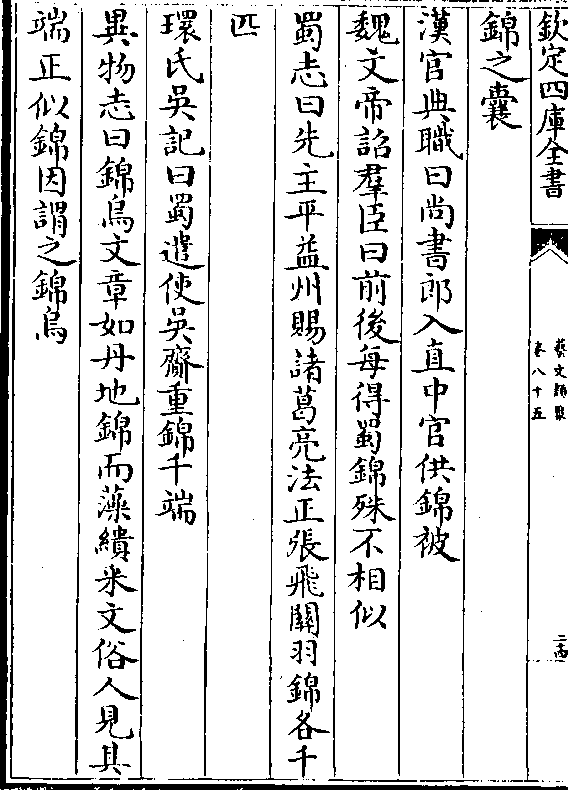 欽定四庫全書
藝文類聚
卷八十五
二十四
錦之囊
漢官典職曰尚書郎入直中官供錦被
魏文帝詔羣臣曰前後每得蜀錦殊不相似
蜀志曰先主平益州賜諸葛亮法正張飛關羽錦各千
匹
環氏吳記曰蜀遣使吳齎重錦千端
異物志曰錦鳥文章如丹地錦而藻繢米文俗人見其
端正似錦因謂之錦鳥